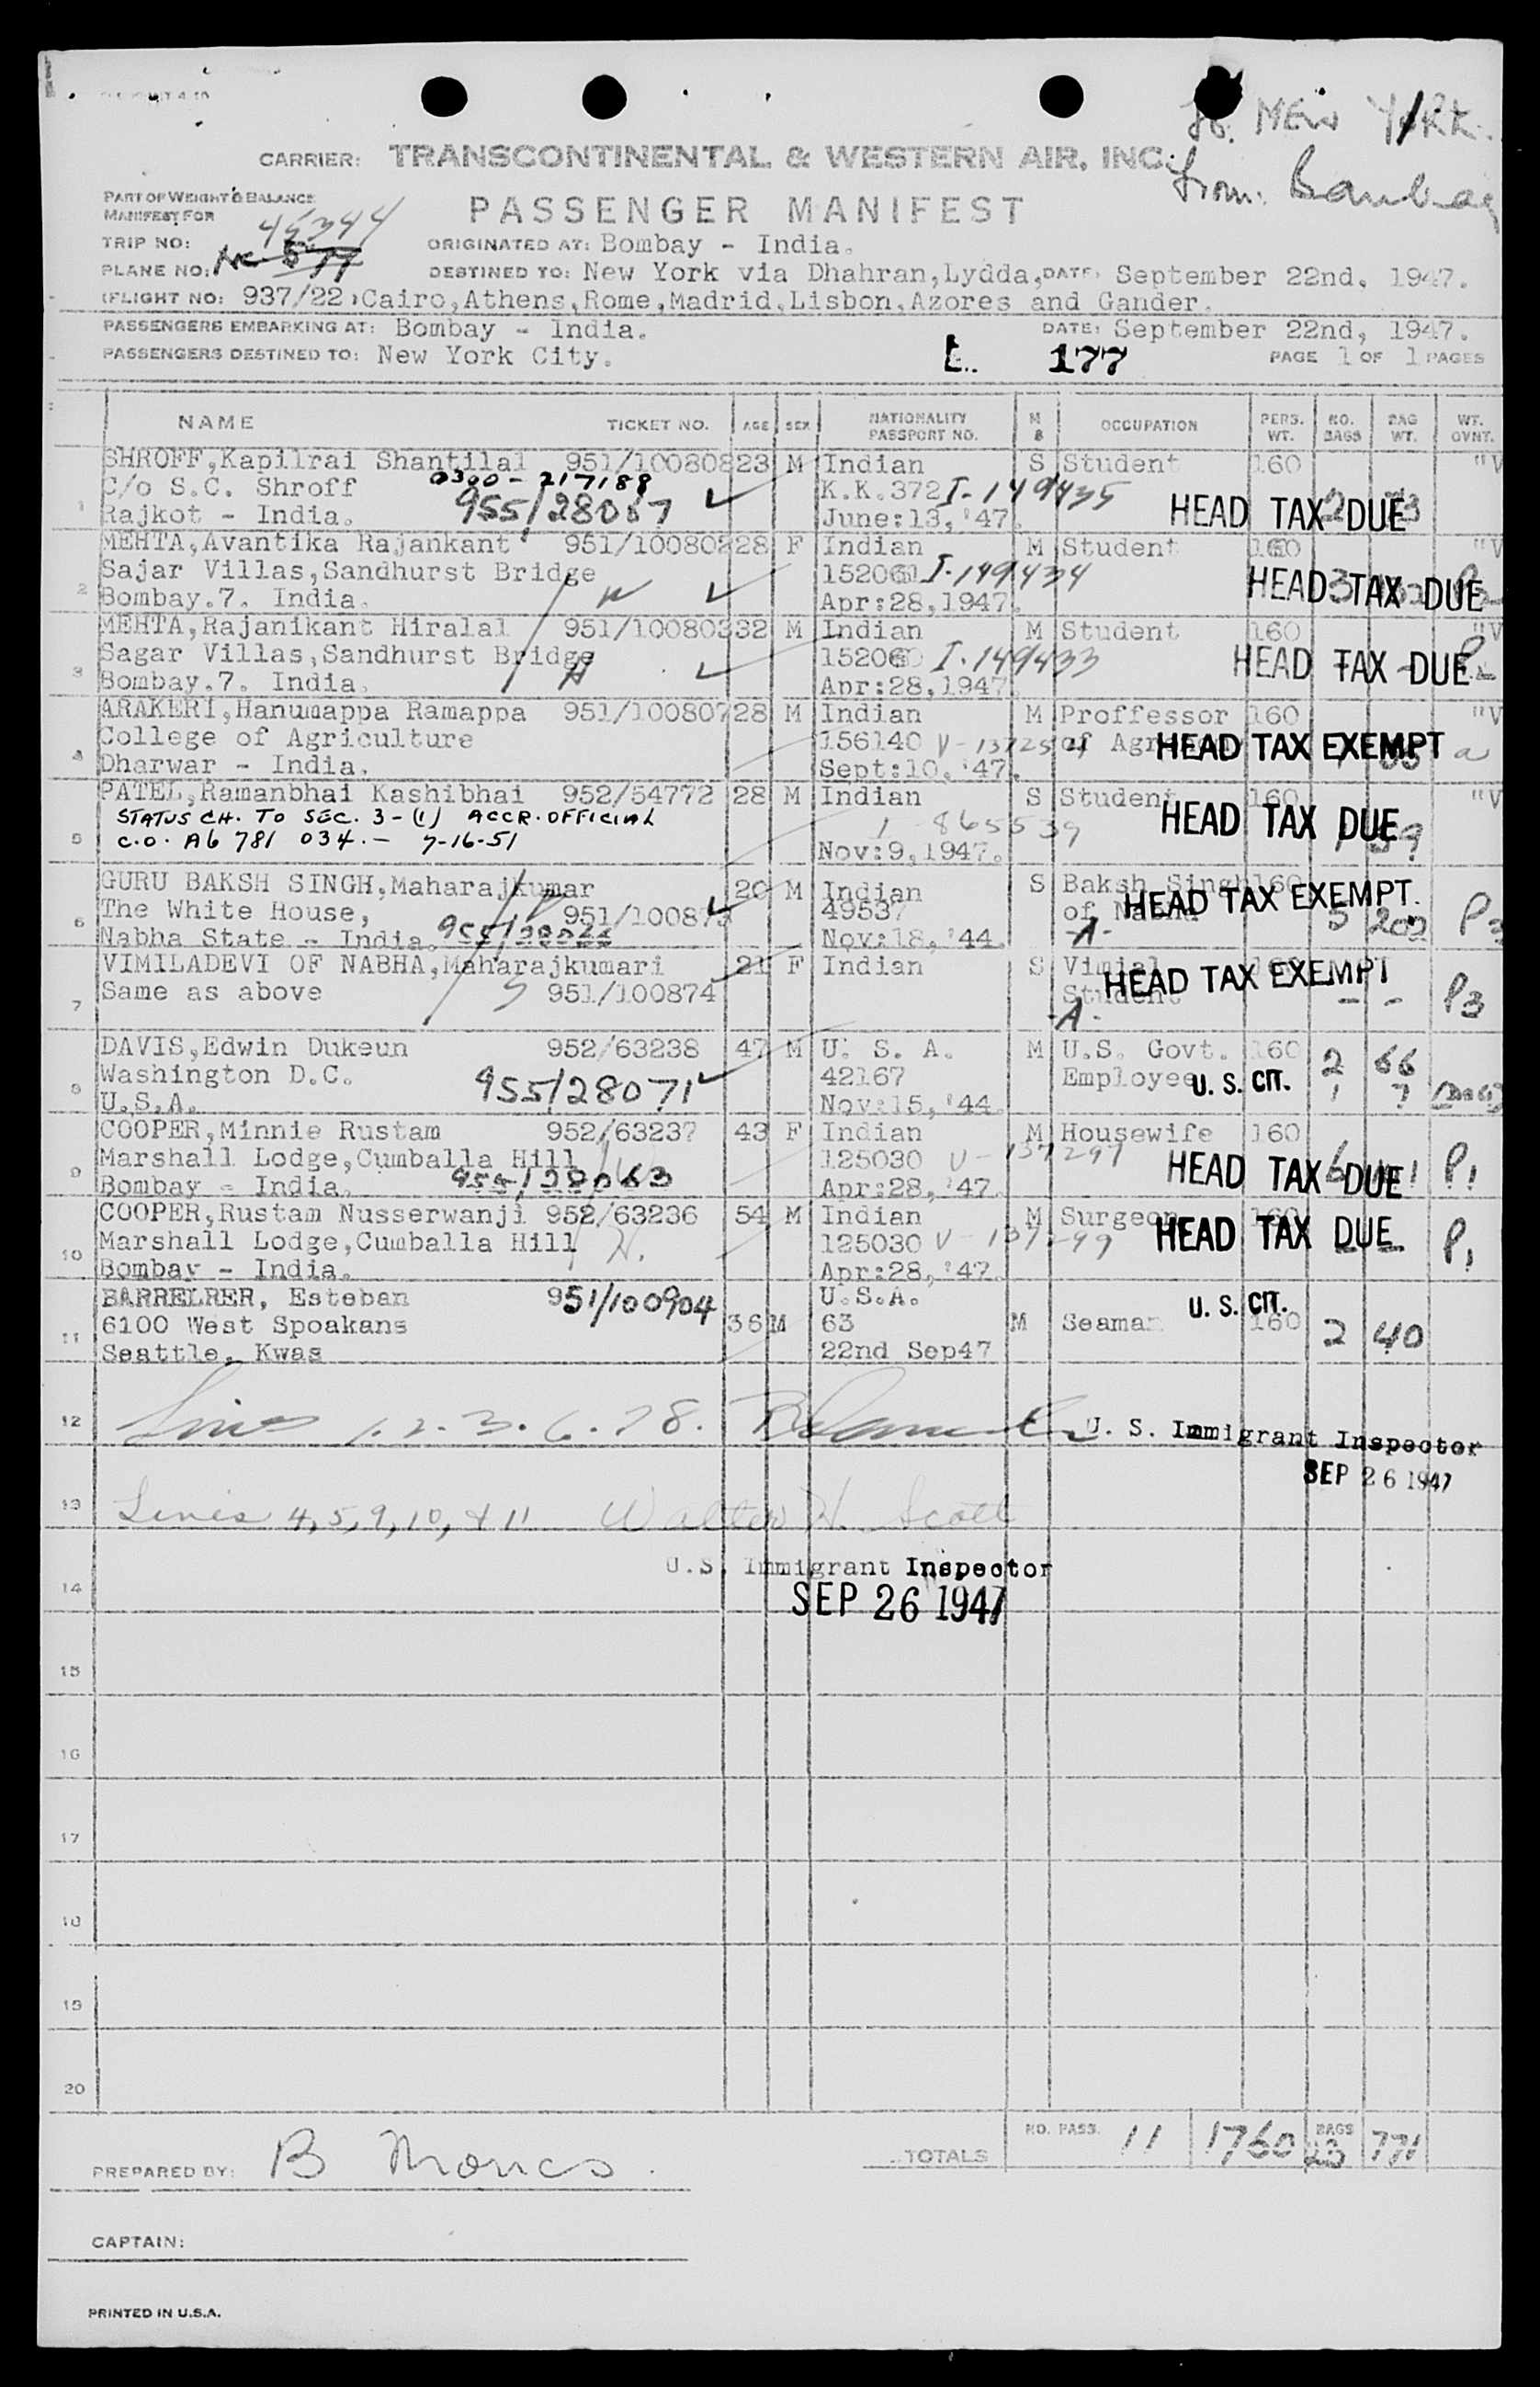 To: NEW YORK.
From: Bombay
CARRIER: TRANSCONTINENTAL & WESTERN AIR, INC.
PART OF WEIGHT & BALANCE
MANIFEST FOR
PASSENGER MANIFEST
TRIP NO: 45344
ORIGINATED AT: Bombay - India.
PLANE NO:
DESTINED TO: New York via Dhahran,Lydda, DATE: September 22nd. 1947.
(FLIGHT NO: 937/22) Cairo,Athens,Rome,Madrid,Lisbon,Azores and Gander.
PASSENGERS EMBARKING AT: Bombay - India. DATE: September 22nd, 1947.
PASSENGERS DESTINED TO: New York City. 177 PAGE 1 OF 1 PAGES
NAME TICKET NO. AGE SEX NATIONALITY PASSPORT NO. M S OCCUPATION PERS. WT. NO. BAGS BAG WT. WT. OVNT.
SHROFF,Kapilrai Shantilal 951/100808 23 M Indian S Student 160 "V
C/o S.C. Shroff 0300-217188 K.K.372 I-149435
1 Rajkot - India. 955/28067 June:13,'47. HEAD TAX DUE
MEHTA,Avantika Rajankant 951/100802 28 F Indian M Student 160 "V
Sajar Villas,Sandhurst Bridge 152061 I-149434
2 Bombay.7. India. Apr:28,1947. HEAD TAX DUE
MEHTA,Rajanikant Hiralal 951/100803 32 M Indian M Student 160 "V
Sagar Villas,Sandhurst Bridge 152060 I-149433 HEAD TAX DUE
3 Bombay.7. India. Apr:28,1947.
ARAKERI,Hanumappa Ramappa 951/100807 28 M Indian M Proffessor 160 "V
College of Agriculture 156140 of HEAD TAX EXEMPT
4 Dharwar - India. Sept:10,'47.
PATEL,Ramanbhai Kashibhai 952/54772 28 M Indian S Student 160 "V
STATUS CH. TO SEC. 3-(1) ACCR. OFFICIAL 865539 HEAD TAX DUE
5 C.O. A6 781 034. - 7-16-51 Nov:9,1947.
GURU BAKSH SINGH,Maharajkumar 20 M Indian S Baksh Singh 160
The White House, 951/100873 49537 of Nabha HEAD TAX EXEMPT.
6 Nabha State - India. Nov:18,'44. -A- 5 200 P3
VIMILADEVI OF NABHA,Maharajkumari 21 F Indian S
Same as above 951/100874 Student HEAD TAX EXEMPT
7 -A- - - P3
DAVIS,Edwin Dukeun 952/63238 47 M U. S. A. M U.S. Govt. 160 2 66
Washington D.C. 42167 Employee U. S. CIT.
8 U.S.A. 955/28071 Nov:15,'44.
COOPER,Minnie Rustam 952/63237 43 F Indian M Housewife 160
Marshall Lodge,Cumballa Hill 125030 V-137297 HEAD TAX DUE P1
9 Bombay - India. 955/28063 Apr:28,'47.
COOPER,Rustam Nusserwanji 952/63236 54 M Indian M Surgeon 160
Marshall Lodge,Cumballa Hill 125030 V-137299 HEAD TAX DUE P1
10 Bombay - India. Apr:28,'47.
BARRELRER, Esteban 951/100904 U.S.A. U. S. CIT.
11 6100 West Spoakans 36 M 63 M Seaman 160 2 40
Seattle, Kwas 22nd Sep47
12 Lines 1.2.3.6.7 8. U. S. Immigrant Inspector
SEP 26 1947
13 Lines 4,5,9,10,& 11 Walter H. Scott
U.S. Immigrant Inspector
14 SEP 26 1947
15
16
17
18
19
20
TOTALS NO. PASS. 11 1760 BAGS 23 771
PREPARED BY: B
CAPTAIN:
PRINTED IN U.S.A.